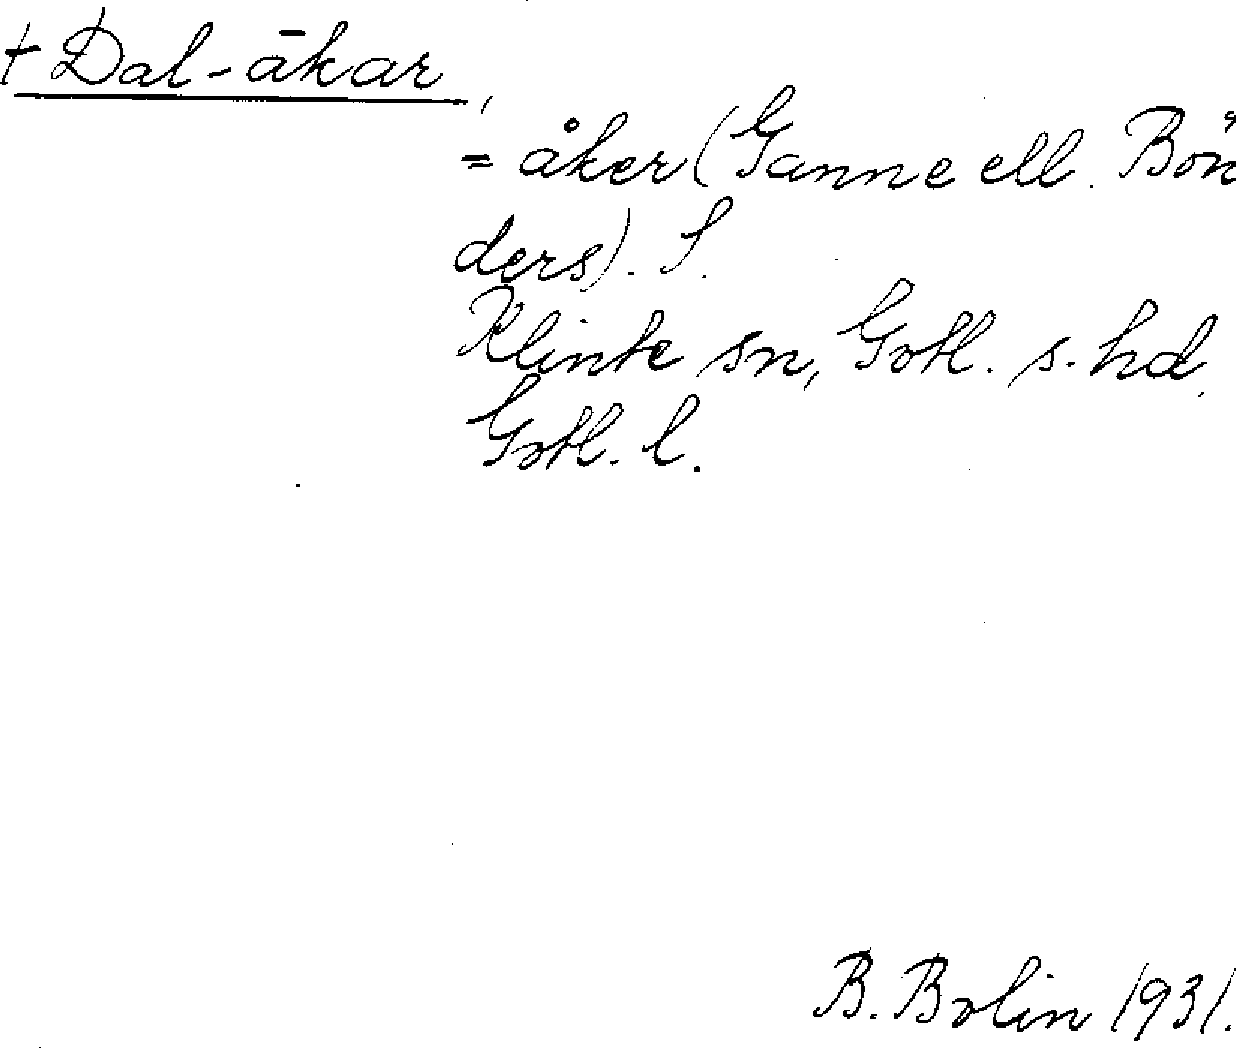 + Dal-ākar,
= åker (Ganne ell. Bön
ders). S.
Klinte sn, Gotl. s. hd,
Gotl. l.
B. Bolin 1931.